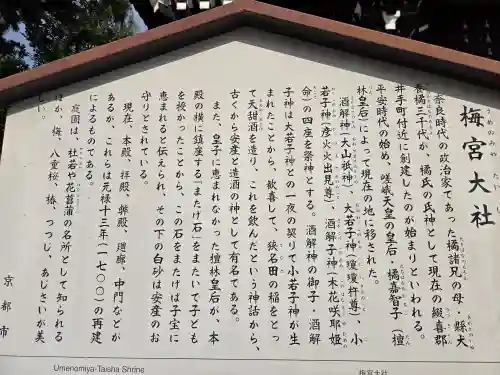 梅宮大社
奈良時代の政治家であった橘諸兄の母、県犬
養橘三千代が、橘氏の氏神として現在の綴喜郡
井手町付近に創建したのが始まりといわれる。
平安時代の始め、嵯峨天皇の皇后・橘嘉智子(檀
林皇后)によって現在の地に移された。
酒解神(大山祇神)、大若子神(瓊瓊杵尊)、小
若子神(彦火火出見尊)、酒解子神(木花咲耶姫
命)の四座を祭神とする。酒解神の御子・酒解
子神は大若子神との一夜の契りで小若子神が生
まれたことから、歓喜して、狭名田の稲をとっ
て天甜酒を造り、これを飲んだという神話から、
古くから安産と造酒の神として有名である。
また、皇子に恵まれなかった檀林皇后が、本
殿の横に鎮座する「またげ石」をまたいで子ども
を授かったことから、この石をまたげば子宝に
恵まれると伝えられ、その下の白砂は安産のお
守りとされている。
現在、本殿、拝殿、幣殿、廻廊、中門などが
あるが、これらは元禄十三年(一七〇〇)の再建
によるものである。
庭園は、杜若や花菖蒲の名所として知られる
ほか、梅、八重桜、椿、つつじ、あじさいが美
しい。
京都市
Umenomiya-Taisha Shrine
梅宮大社